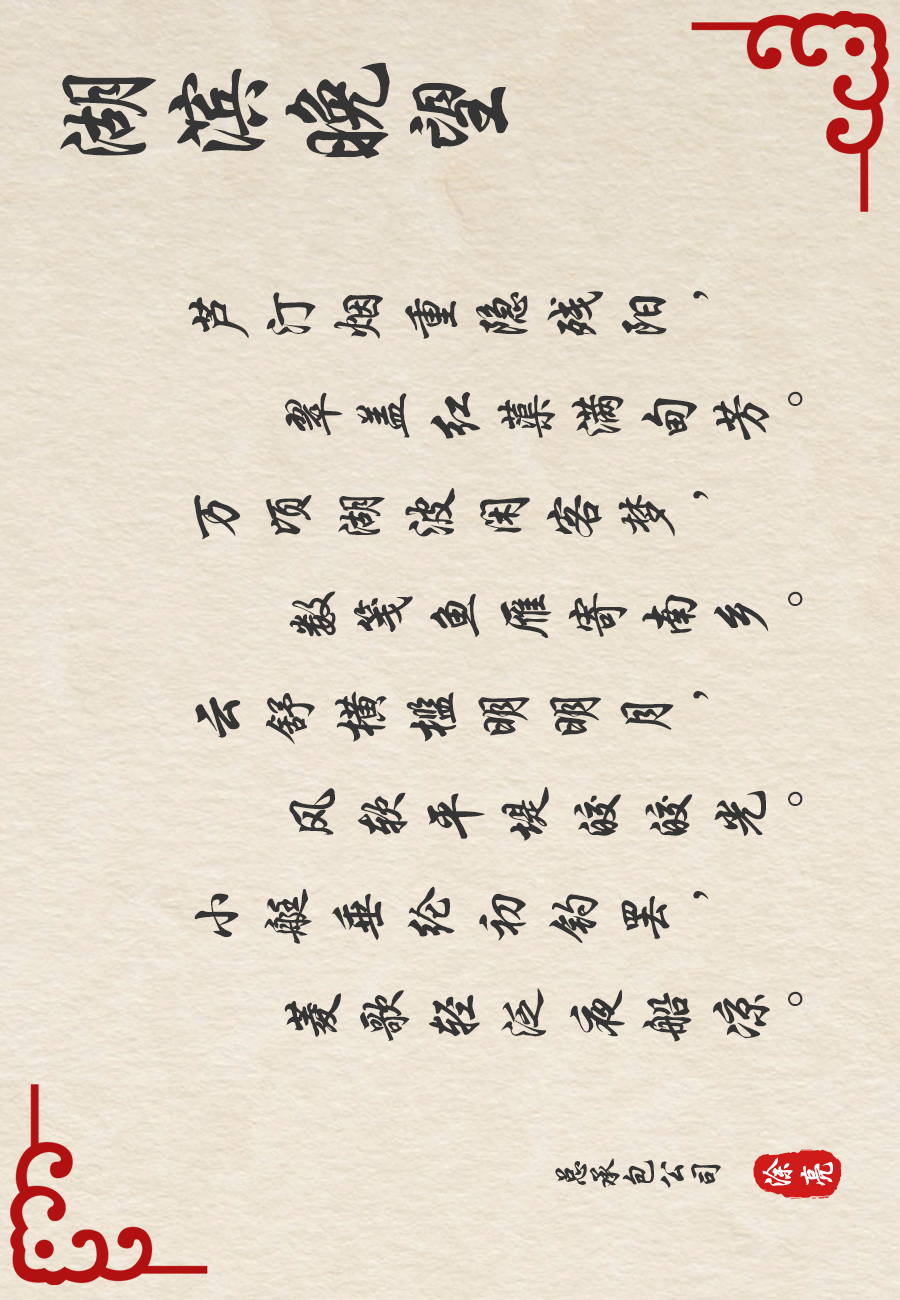 湖滨晚望
芦汀烟重隐残阳，
翠盖红蕖满甸芳。
万顷湖波闲客梦，
数笺鱼雁寄南乡。
云舒横槛明明月，
风软平堤皎皎光。
小艇垂纶初钓罢，
菱歌轻泛夜船凉。
总承包公司
涂亮